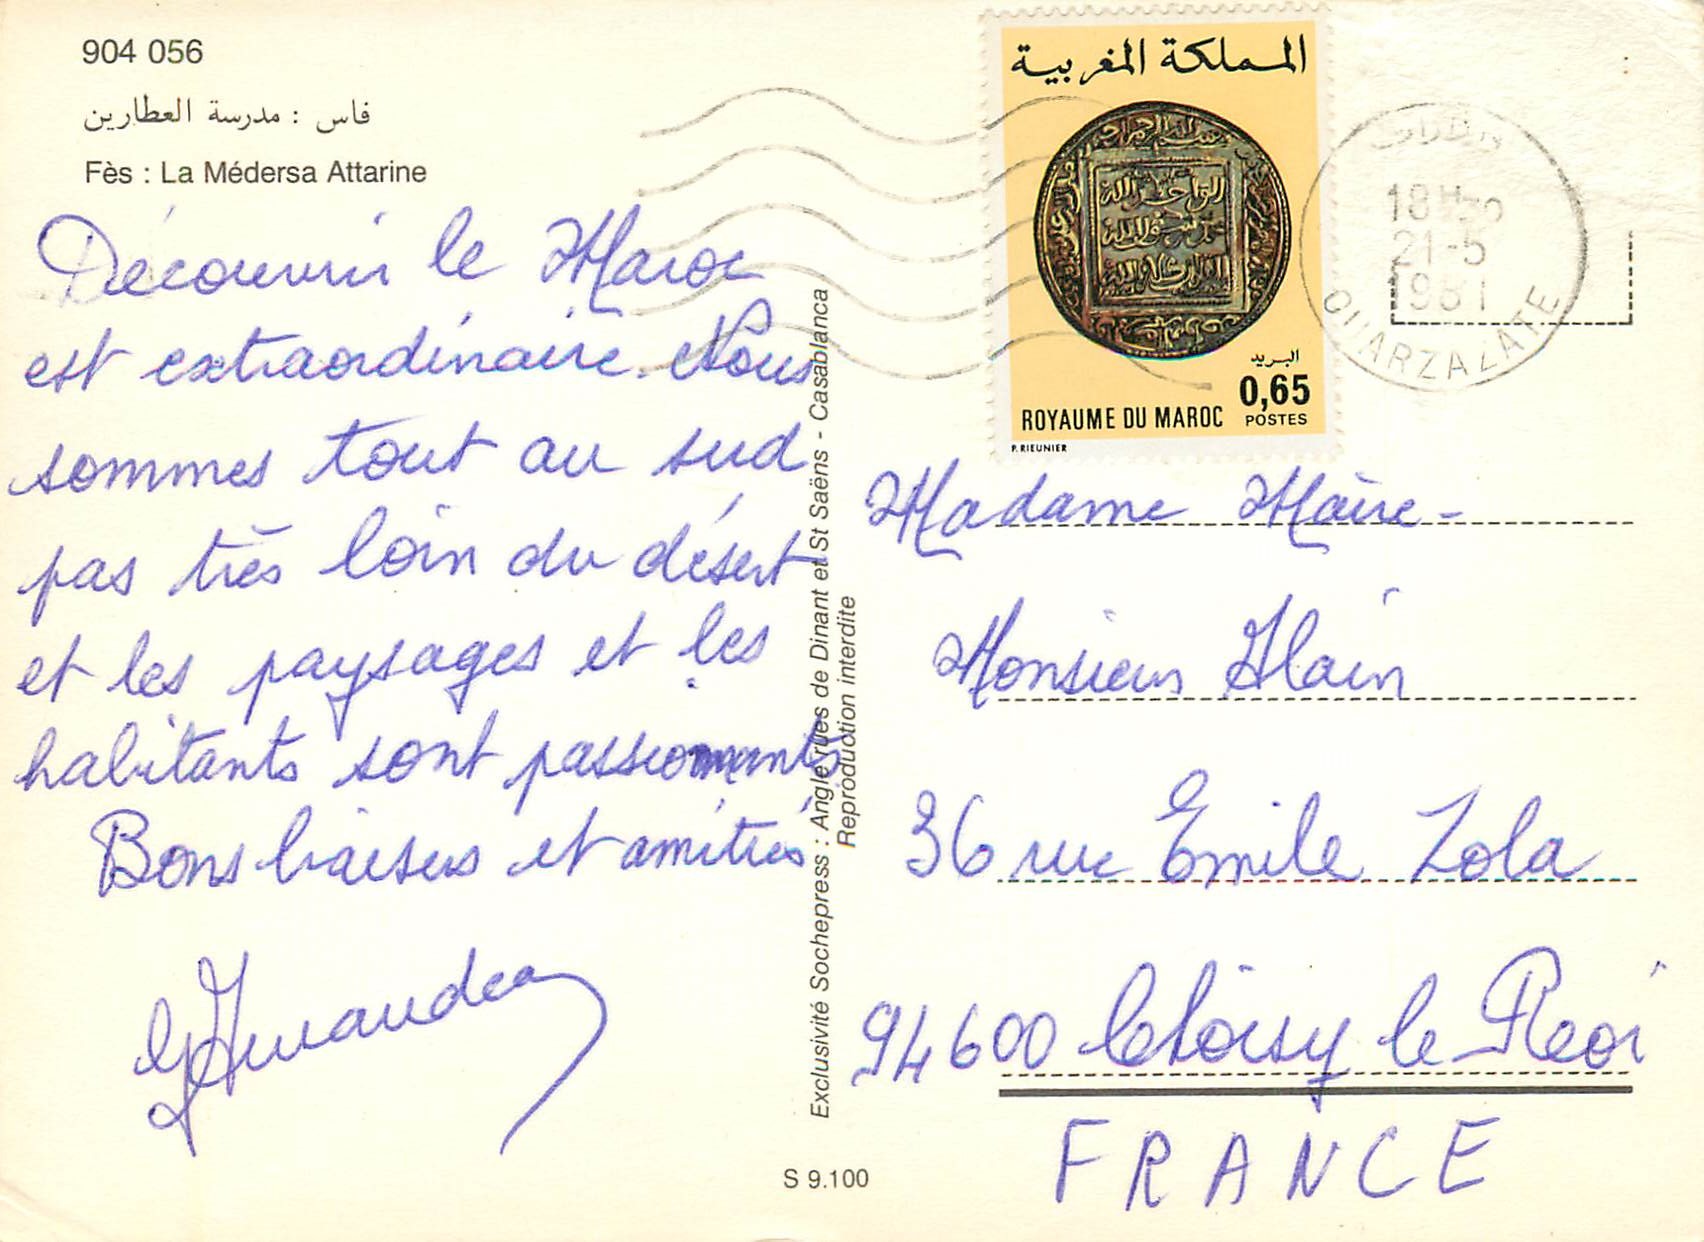 904 056
فاس : مدرسة العطارين
Fès : La Médersa Attarine
Découvrir le Maroc
est extraordinaire. Nous
sommes tout au sud
pas très loin du désert
et les paysages et les
habitants sont passionnants
Bons baisers et amitiés
Exclusivité Sochepress : Angle rues de Dinant et St Saëns - Casablanca
Reproduction interdite
S 9.100
المملكة المغربية
البريد
0,65
ROYAUME DU MAROC POSTES
P. RIEUNIER
18H30
21-5
1981
OUARZAZATE
Madame Maire -
Monsieur Alain
36 rue Emile Zola
94600 Choisy le Roi
FRANCE